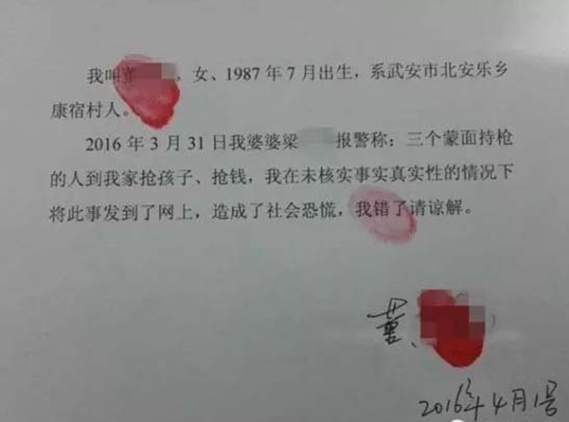 我叫、女、1987 年 7 月出生，系武安市北安乐乡
康宿村人。
2016 年 3 月 31 日我婆婆梁 报警称：三个蒙面持枪
的人到我家抢孩子、抢钱，我在未核实事实真实性的情况下
将此事发到了网上，造成了社会恐慌，我错了请谅解。
2016年4月1号